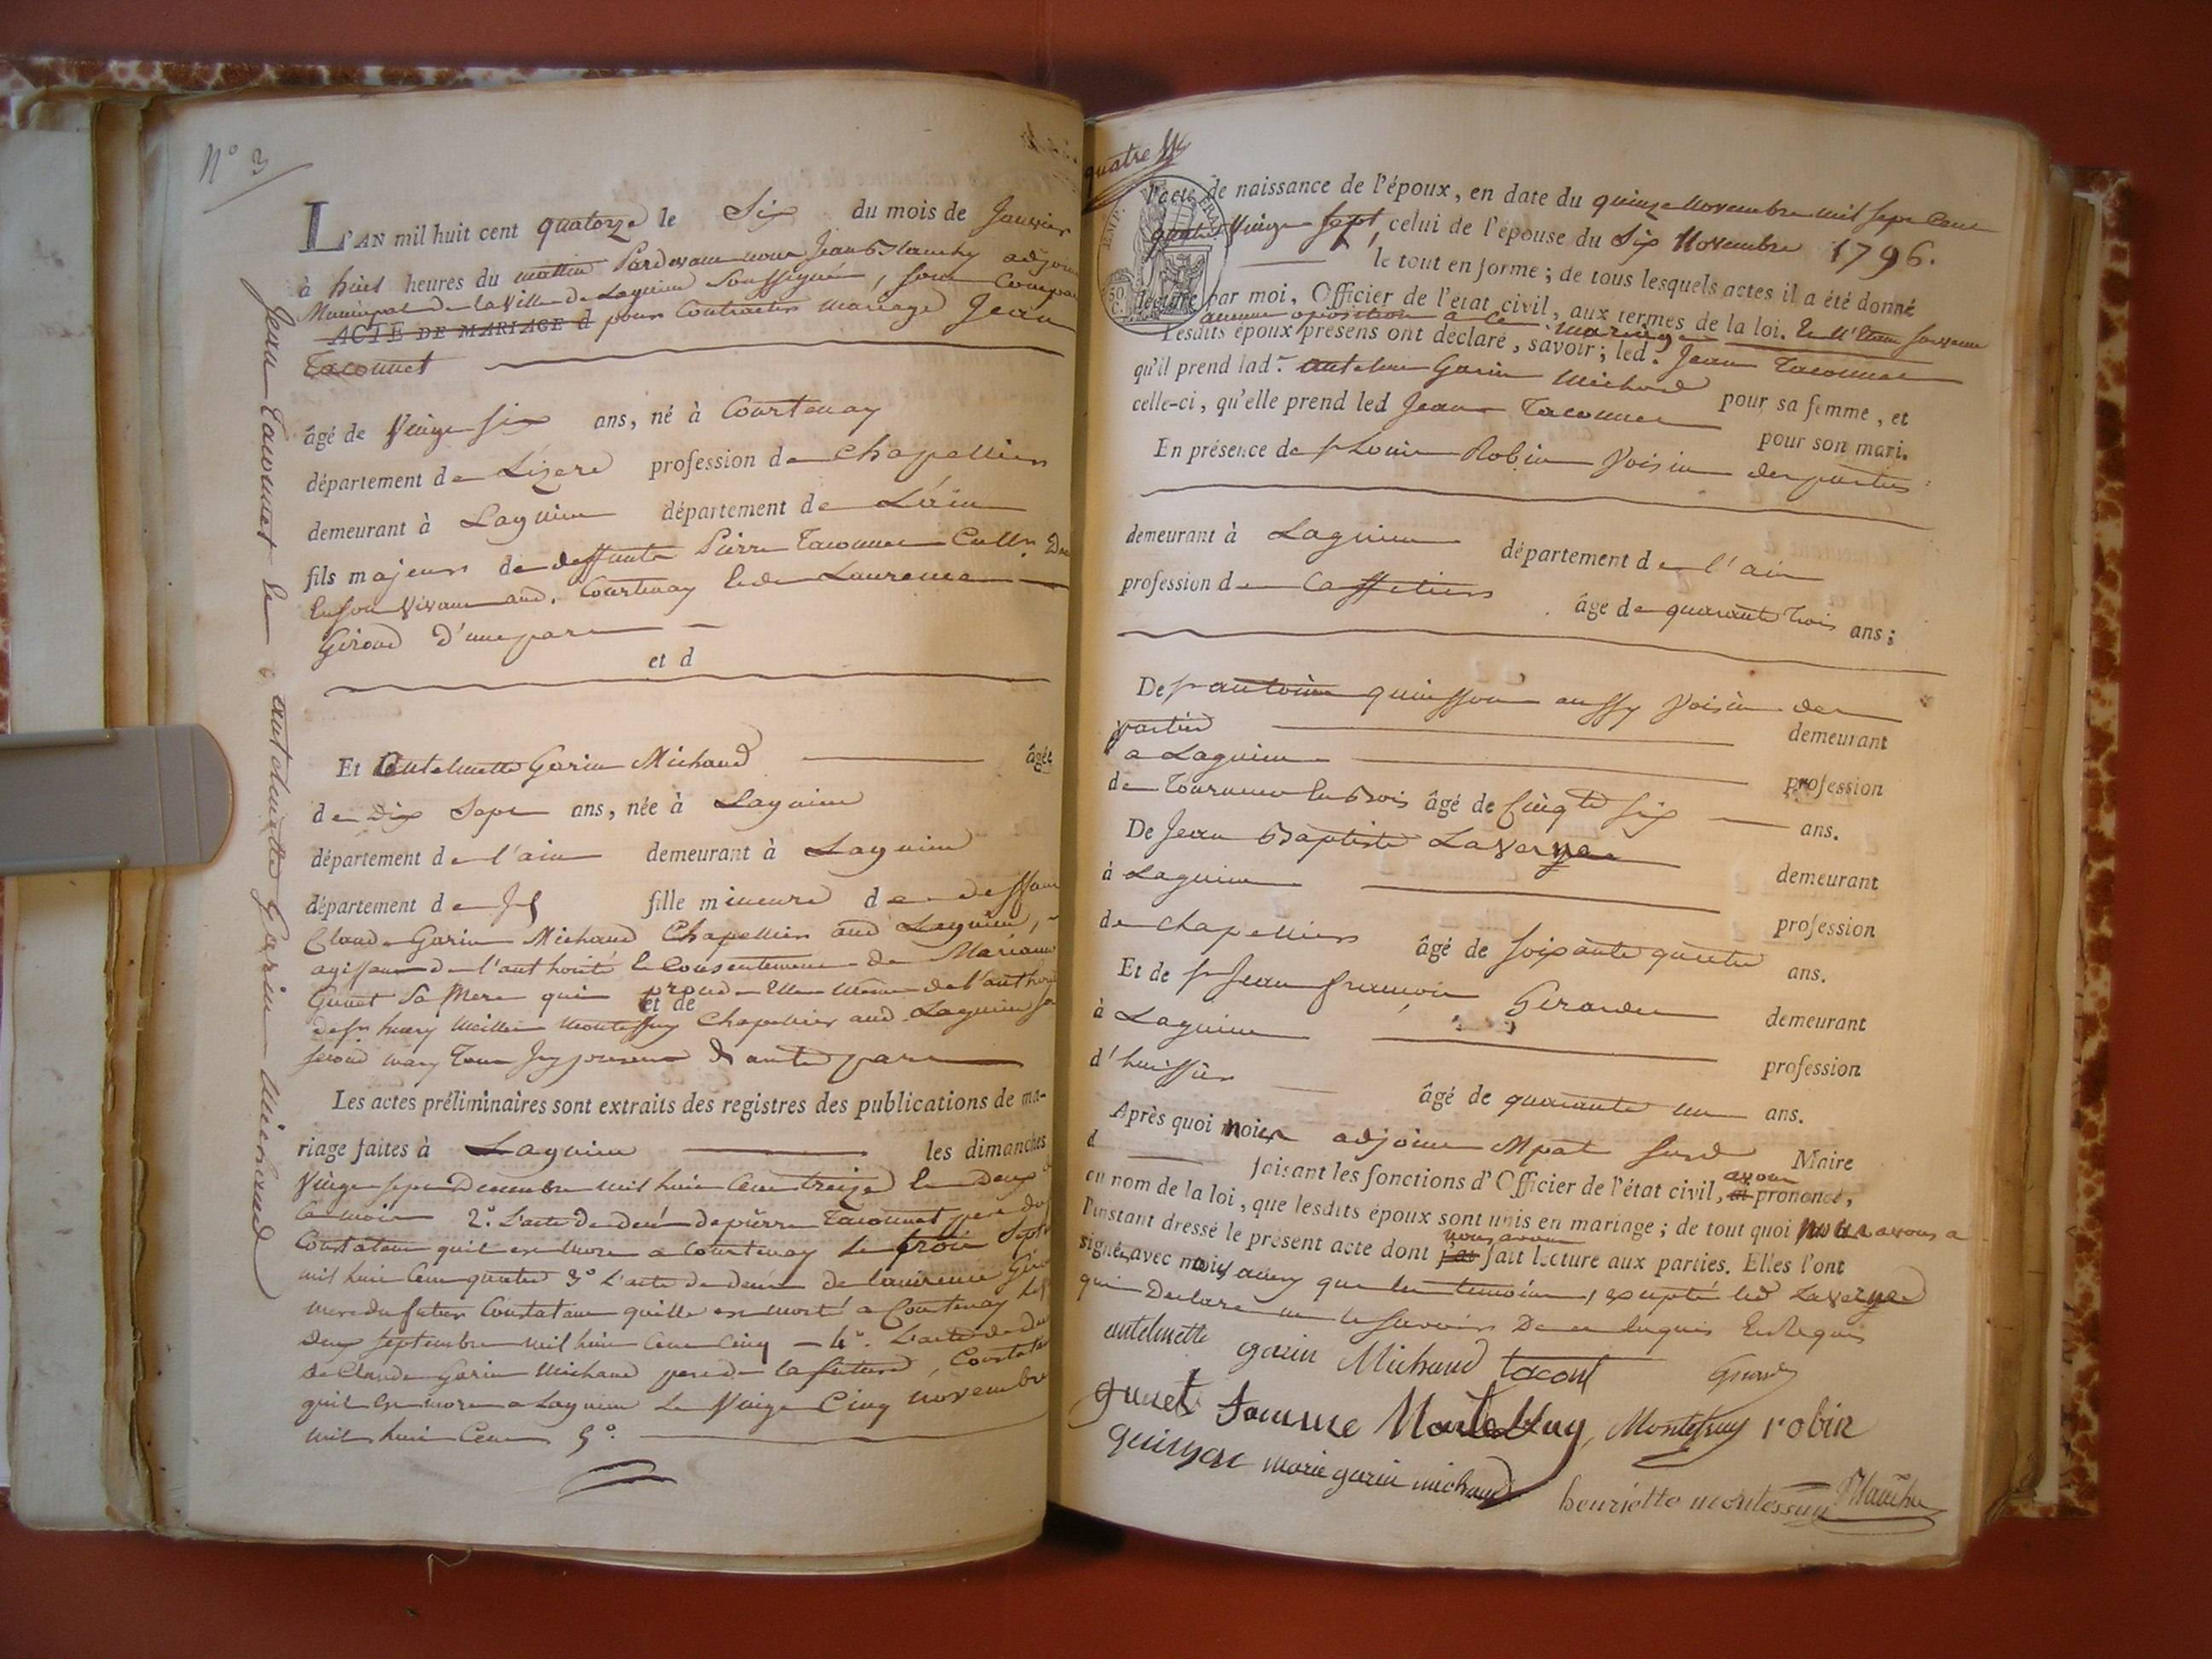 N° 3
Jean Taconnet et antelmette Garin Michaud
L'AN mil huit cent quatorze le Six du mois de Janvier
à huit heures du mattin Pardevant nous Jean Blanchy adjoin
Municipal de la Ville de Lagnieu Soussigné, sont Compar
ACTE DE MARIAGE d pour Contracter mariage Jean
Taconnet
âgé de Vingt six ans, né à Courtenay
département de Lizere profession de Chapellier
demeurant à Lagnieu département de L'ain
fils majeur de deffunts Pierre Taconnet Cultr.
En son Vivant aud. Courtenay Et de Laurence
Giroud D'une part
et d
Et antelmette Garin Michaud âgée
de Dix Sept ans, née à Lagnieu
département de l'ain demeurant à Lagnieu
département de fille mineure de deffunt
Claude Garin Michaud Chapellier aud Lagnieu,
agissant de l'authorité et Consentement de Marianne
Gunet Sa Mere qui procede Elle même de l'authori
et de
de Sr. henry Montessuy Chapellier aud. Lagnieu
second mary Tous Icy présents d'autre part
Les actes préliminaires sont extraits des registres des publications de ma-
riage faites à Lagnieu les dimanches
Vingt sept Decembre mil huit Cent treize Et Deux
Ce mois 2.° L'acte de décé de pierre Taconnet pere du
Constatant qu'il est mort a Courtenay Le trois Septe
mil huit Cent quatre 3.° L'acte de décé de laurence Giro
mere du futur Constatant qu'elle est morte a Courtenay Le
Deux septembre mil huit Cent Cinq - 4.° L'acte de dé
de Claude Garin Michaud pere de la future, Constata
qu'il Est mort a Lagnieu Le Vingt Cinq novembre
mil huit Cent 5.°
quatre
l'acte de naissance de l'époux, en date du quinze Novembre mil sept Cent
quatre Vingt Sept, celui de l'épouse du Six Novembre 1796.
le tout en forme ; de tous lesquels actes il a été donné
lecture par moi, Officier de l'état civil, aux termes de la loi. Et N'Etant survenu
aucune oposition a ce mariage
Lesdits époux présens ont déclaré, savoir ; led. Jean Taconnet
qu'il prend lad.e antelmette Garin Michaud pour sa femme, et
celle-ci, qu'elle prend led Jean Taconnet pour son mari.
En présence de Sr Louis Robin Voisin des parties
demeurant à Lagnieu département de l'ain
profession de Caffetier âgé de quarante trois ans ;
De Sr antoine quinsson aussy Voisin des
parties demeurant
a Lagnieu profession
de Tourneur En Bois âgé de Cinqte Six ans.
De Jean Baptiste Lavergne demeurant
à Lagnieu profession
de Chapellier âgé de soixante quatre ans.
Et de Sr Jean françois Girardet demeurant
à Lagnieu profession
d'huissier âgé de quarante un ans.
Après quoi nous adjoint Mpal Maire
d faisant les fonctions d'Officier de l'état civil, avons prononcé,
au nom de la loi, que lesdits époux sont unis en mariage ; de tout quoi nous avons a
l'instant dressé le présent acte dont nous avons fait lecture aux parties. Elles l'ont
signé avec nous ainsy que les temoins, excepté led Lavergne
qui Declare ne le savoir De ce Enquis Et Requis
antelmette garin Michaud tacont
gunet famme Montessuy, Montessuy robin
quinson marie garin michaud
henriette montessuy Blanchy